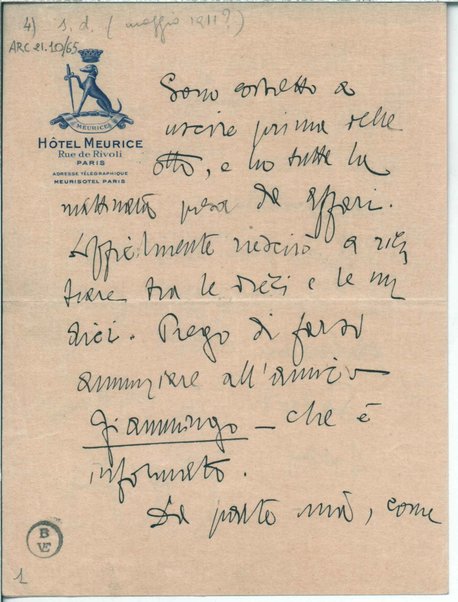 4) s. d. (maggio 1911?)
ARC 21.10/65
MEURICE
HÔTEL MEURICE
Rue de Rivoli
PARIS
ADRESSE TÉLÉGRAPHIQUE
MEURISOTEL PARIS
Sono costretto a
uscire prima delle
otto, e ho tutta la
mattinata presa da affari.
Difficilmente riescirò a rien
trare tra le dieci e le un
dici. Prego di farsi
annunziare all'amico
Giammingo – che è
informato.
Da parte mia, come
B
VE
1